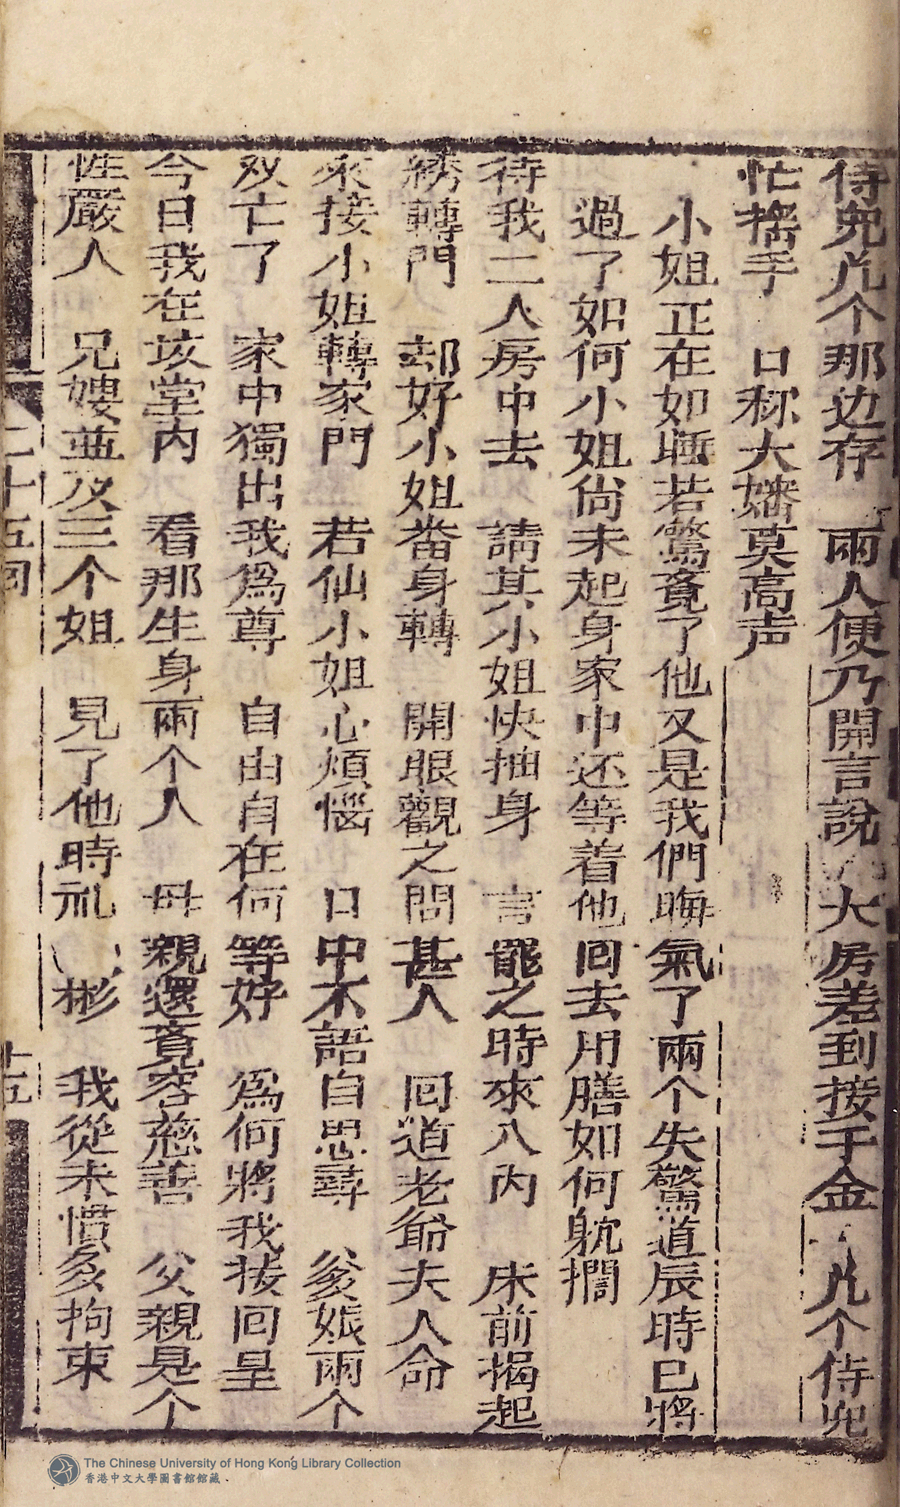 侍児几个那边存　兩人便乃開言說　大房差到接千金　几个侍児
忙搖手　口称大嬸莫高声
小姐正在如睡若驚竟了他又是我們晦氣了兩个失驚道辰時已將
過了如何小姐尚未起身家中还等着他回去用膳如何躭擱
待我二人房中去　請其小姐快抽身　言罷之時來入内　床前揭起
綉轉門　却好小姐畨身轉　開眼觀之問甚人　回道老爺夫人命
來接小姐轉家門　若仙小姐心煩惱　口中不語自思尋　爹娘兩个
双亡了　家中獨出我爲尊　自由自在何等好　爲何將我接回呈
今日我在垓堂内　看那生身兩个人　母親還竟容慈善　父親是个
性嚴人　兄嫂並及三个姐　見了他時礼彬　我從未慣多拘束
二十五囘
十五
The Chinese University of Hong Kong Library Collection
香港中文大學圖書館館藏